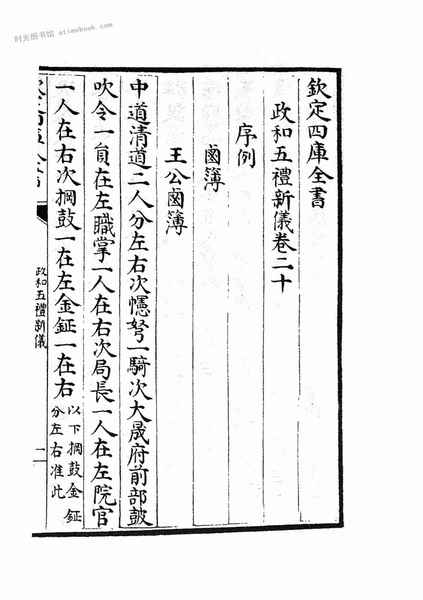 时光图书馆 etimebook.com
欽定四庫全書
政和五禮新儀卷二十
序例
鹵簿
王公鹵簿
中道清道二人分左右次幰弩一騎次大晟府前部鼓
吹令一員在左職掌一人在右次局長一人在左院官
一人在右次掆鼓一在左金鉦一在右以下掆鼓金鉦
分左右准此
政和五禮新儀